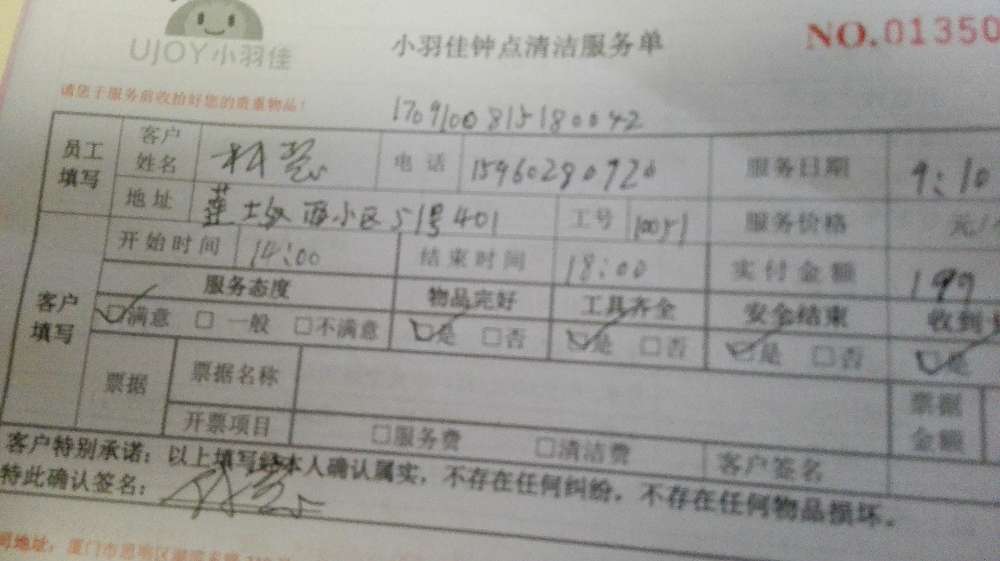 UJOY小羽佳
小羽佳钟点清洁服务单
NO.01350
请您于服务前收拾好您的贵重物品!
1709100815180042
员工填写 客户姓名 电话 15960290920 服务日期 9:10
地址 西小区51号401 工号 10051 服务价格 元/
客户填写 开始时间 14:00 结束时间 18:00 实付金额
服务态度 物品完好 工具齐全 安全结束 收到
☑满意 □一般 □不满意 ☑是 □否 ☑是 □否 ☑是 □否 ☑是
票据 票据名称 票据金额
开票项目 □服务费 □清洁费 客户签名
客户特别承诺:以上填写经本人确认属实,不存在任何纠纷,不存在任何物品损坏。
特此确认签名:
司地址:厦门市思明区